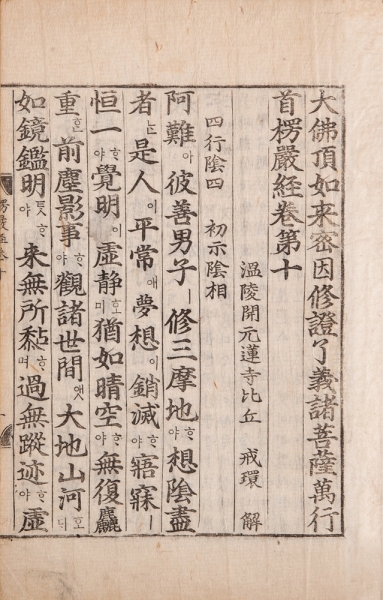 大佛頂如来宻因修證了義諸菩薩萬行
首楞嚴經卷第十
溫陵開元蓮寺比丘 戒環 解
四行陰四 初示陰相
阿難아彼善男子ㅣ修三摩地ᄒᆞ야想陰盡
者ᄂᆞᆫ是人이平常애夢想이銷滅ᄒᆞ야寤寐ㅣ
恒一ᄒᆞ야覺明이虛静호미猶如晴空ᄒᆞ야無復麤
重ᄒᆞᆫ前塵影事ᄒᆞ야觀諸世間앳大地山河호ᄃᆡ
如鏡鑑明ᄐᆞᆺᄒᆞ야来無所黏ᄒᆞ며過無蹤迹ᄒᆞ야虛